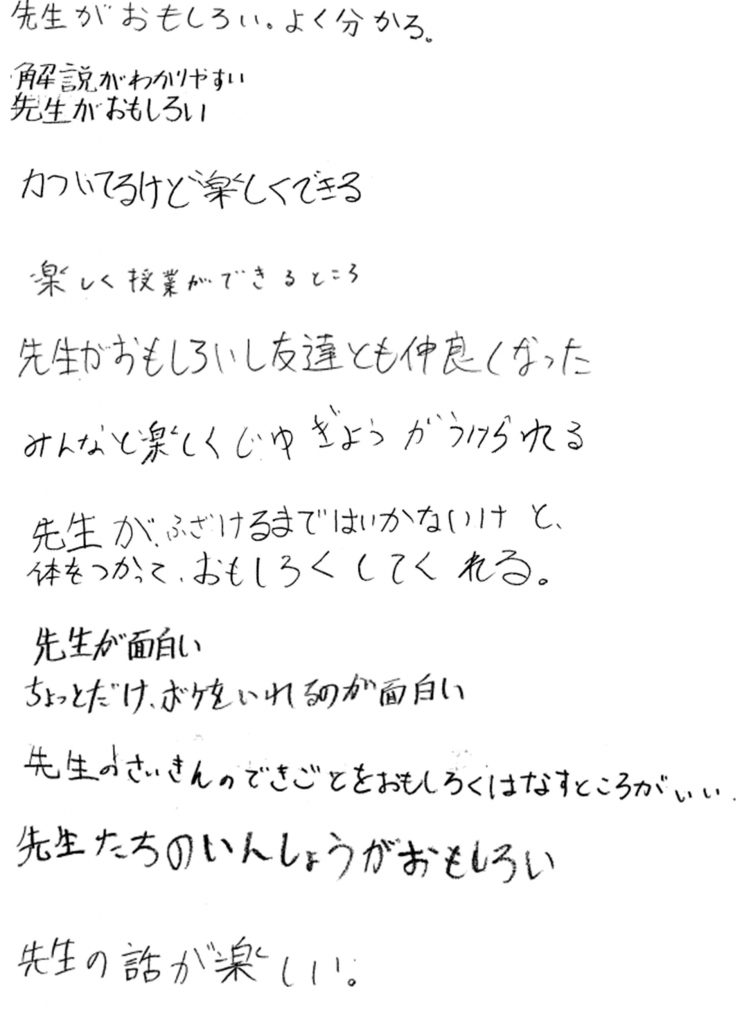 先生がおもしろい。よく分かる。
解説がわかりやすい
先生がおもしろい
力ついてるけど楽しくできる
楽しく授業ができるところ
先生がおもしろいし友達とも仲良くなった
みんなと楽しくじゅぎょうがうけられる
先生が、ふざけるまではいかないけど、
体をつかって、おもしろくしてくれる。
先生が面白い
ちょっとだけ、ボケをいれるのが面白い
先生のさいきんのできごとをおもしろくはなすところがいい.
先生たちのいんしょうがおもしろい
先生の話が楽しい。